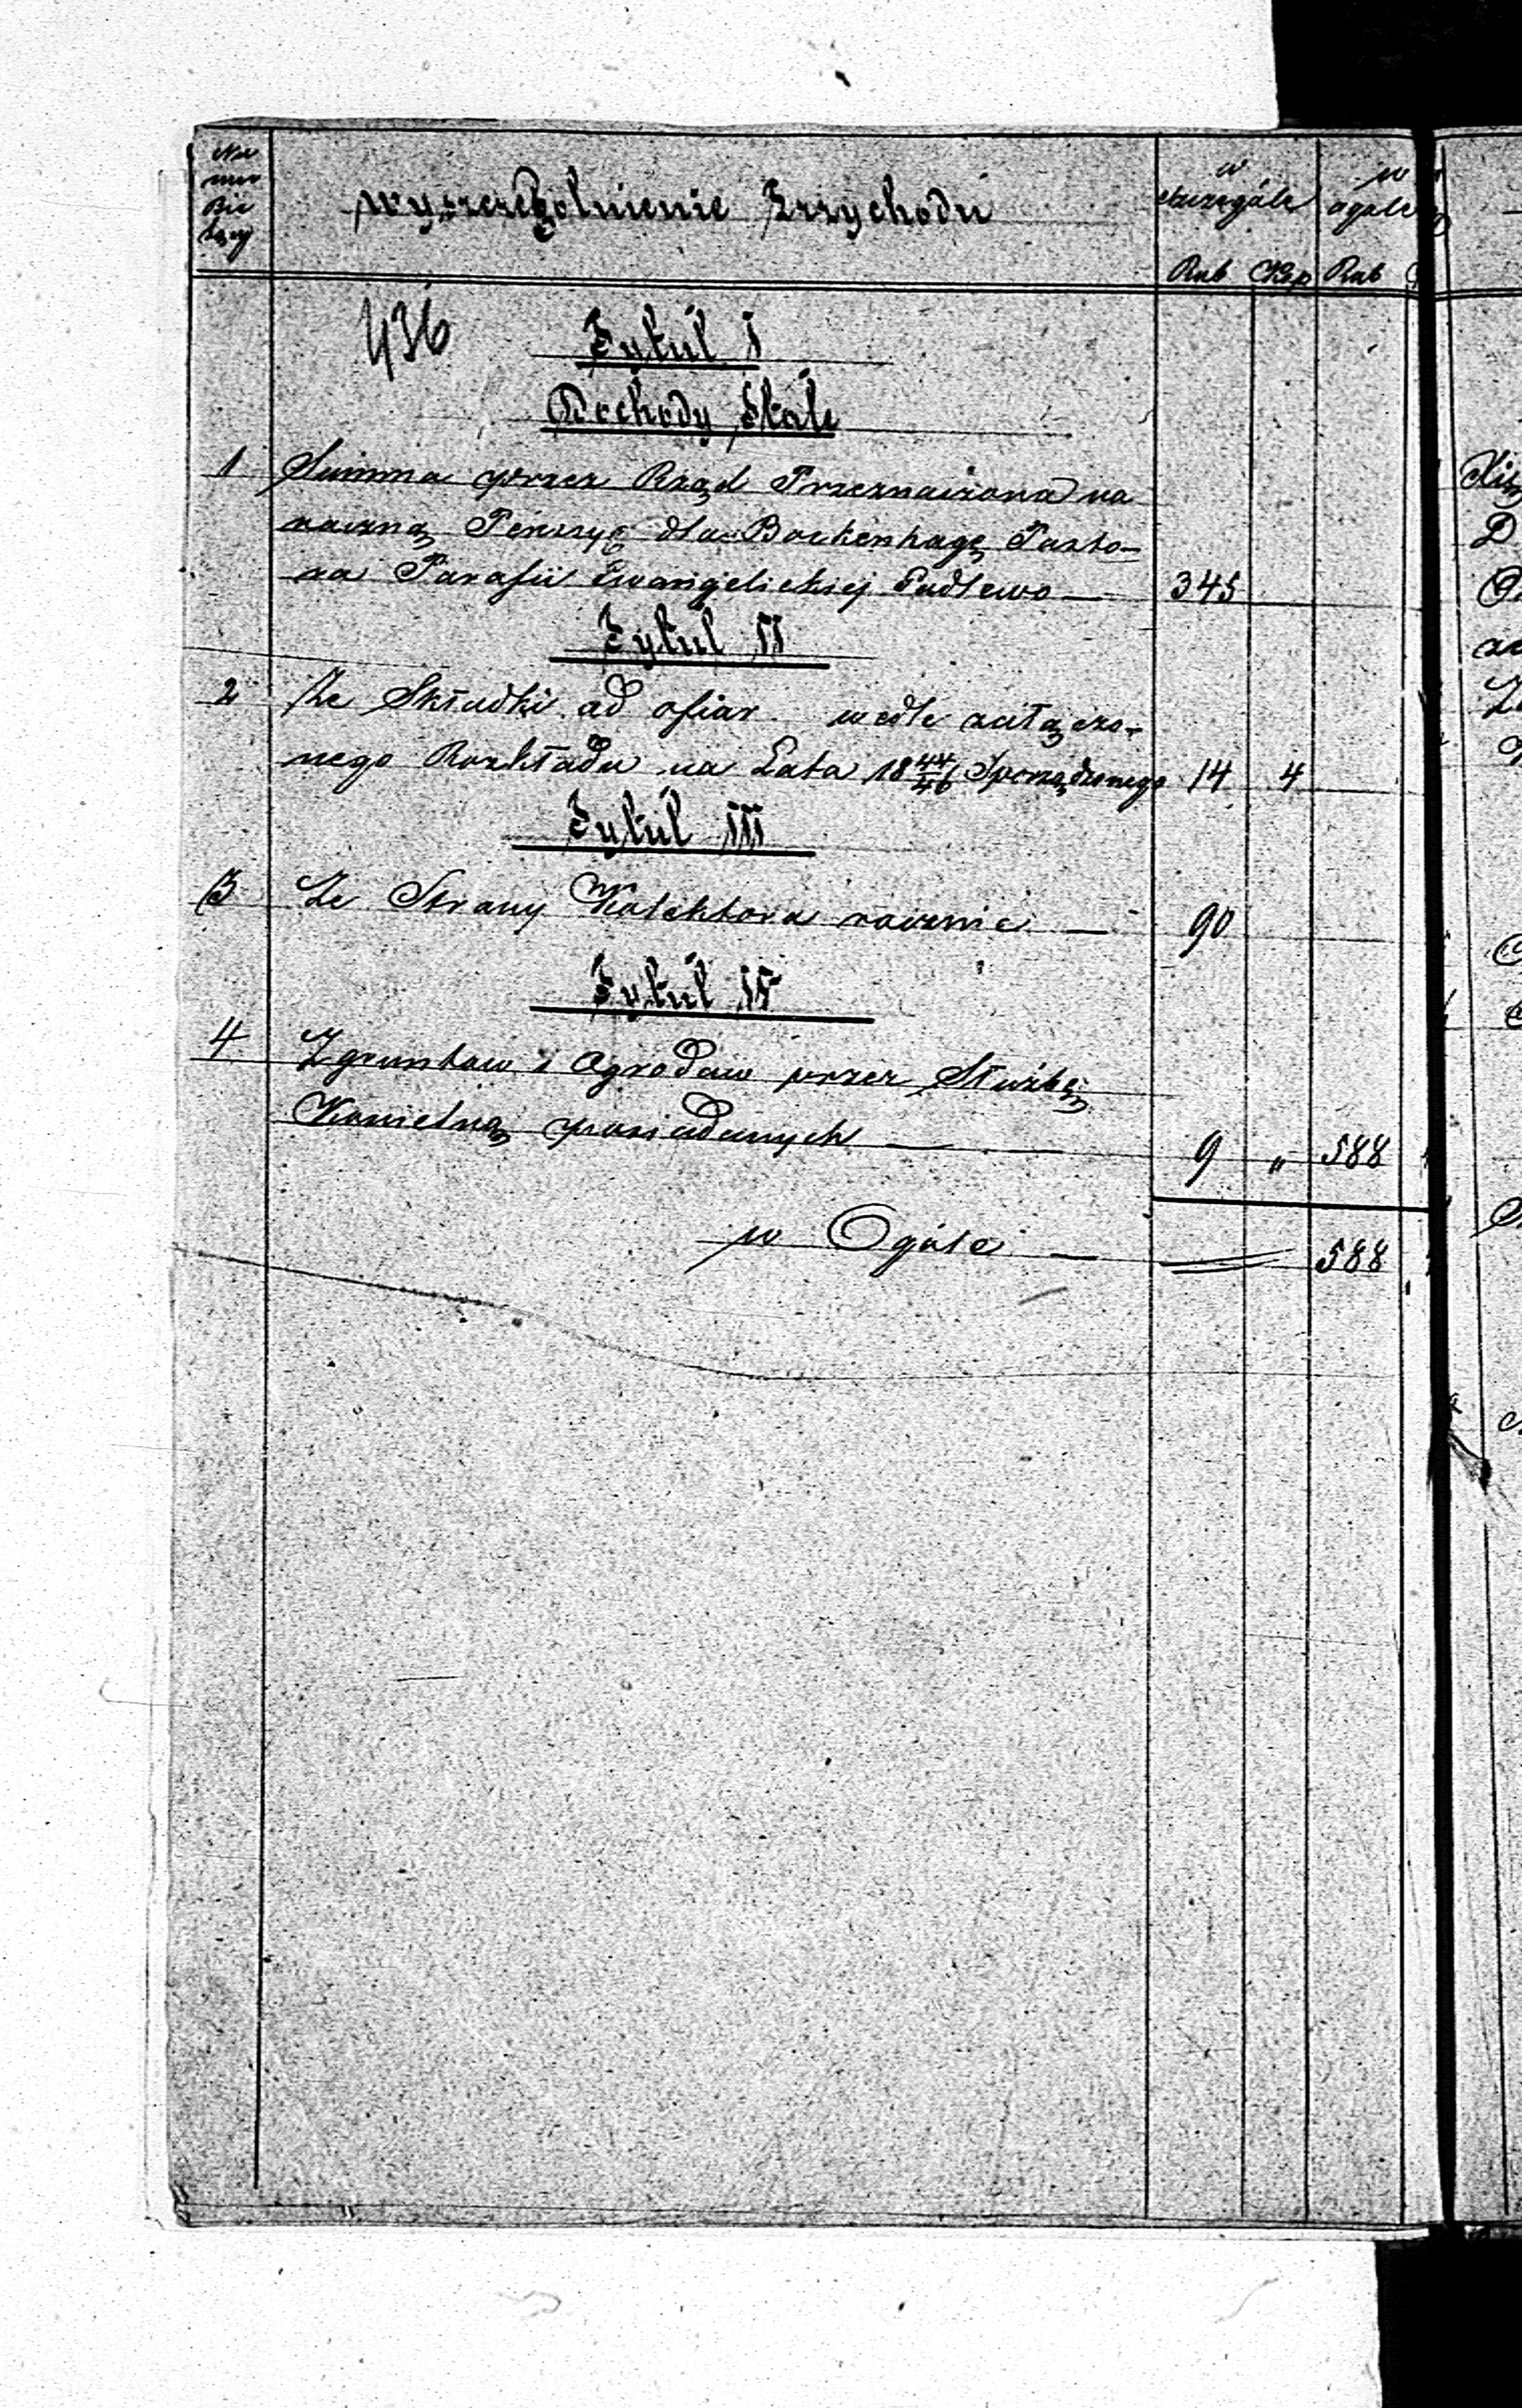 Nu
mer
Bie
żący
wyszczególnienie Przychodu
w
szczególe
w
ogóle
Rub Kop Rub
436
Tytúl I
Dochody Stałe
1 Summa przez Rząd Przeznaczona na
roczną Pensyę dla Bockenhagę Pasto-
ra Parafii Ewangelickiej Padlewo — 345
Tytul II
2 Ze Składki od ofiar wedle załączo-
nego Rozkładu na Lata 18 44/46 Sporządzonego 14 4
Tytúl III
3 Ze Strany Kolektora rocznie — 90
Tytúl IV
4 Z gruntow i Ogrodow przez Służbę
Koscielną posiadanych — 9 „ 588
w Ogóle — 588